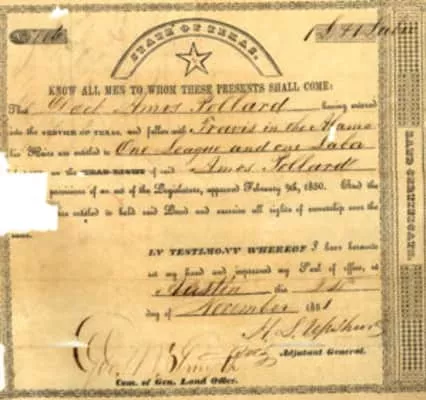 1 L & 1 Labor
STATE OF TEXAS.
KNOW ALL MEN TO WHOM THESE PRESENTS SHALL COME:
That Doct Amos Pollard having entered
into the SERVICE OF TEXAS, and fallen with Travis in the Alamo
his Heirs are entitled to One League and one Laba
on the HEAD-RIGHT of said Amos Pollard
provisions of an act of the Legislature, approved February 9th, 1850. And the
entitled to hold said Land and exercise all rights of ownership over the
same.
IN TESTIMONY WHEREOF I have hereunto
set my hand and impressed my Seal of office, at
Austin this
day of November 1851
Adjutant General.
Com. of Gen. Land Office.
LAND CERTIFICATE.